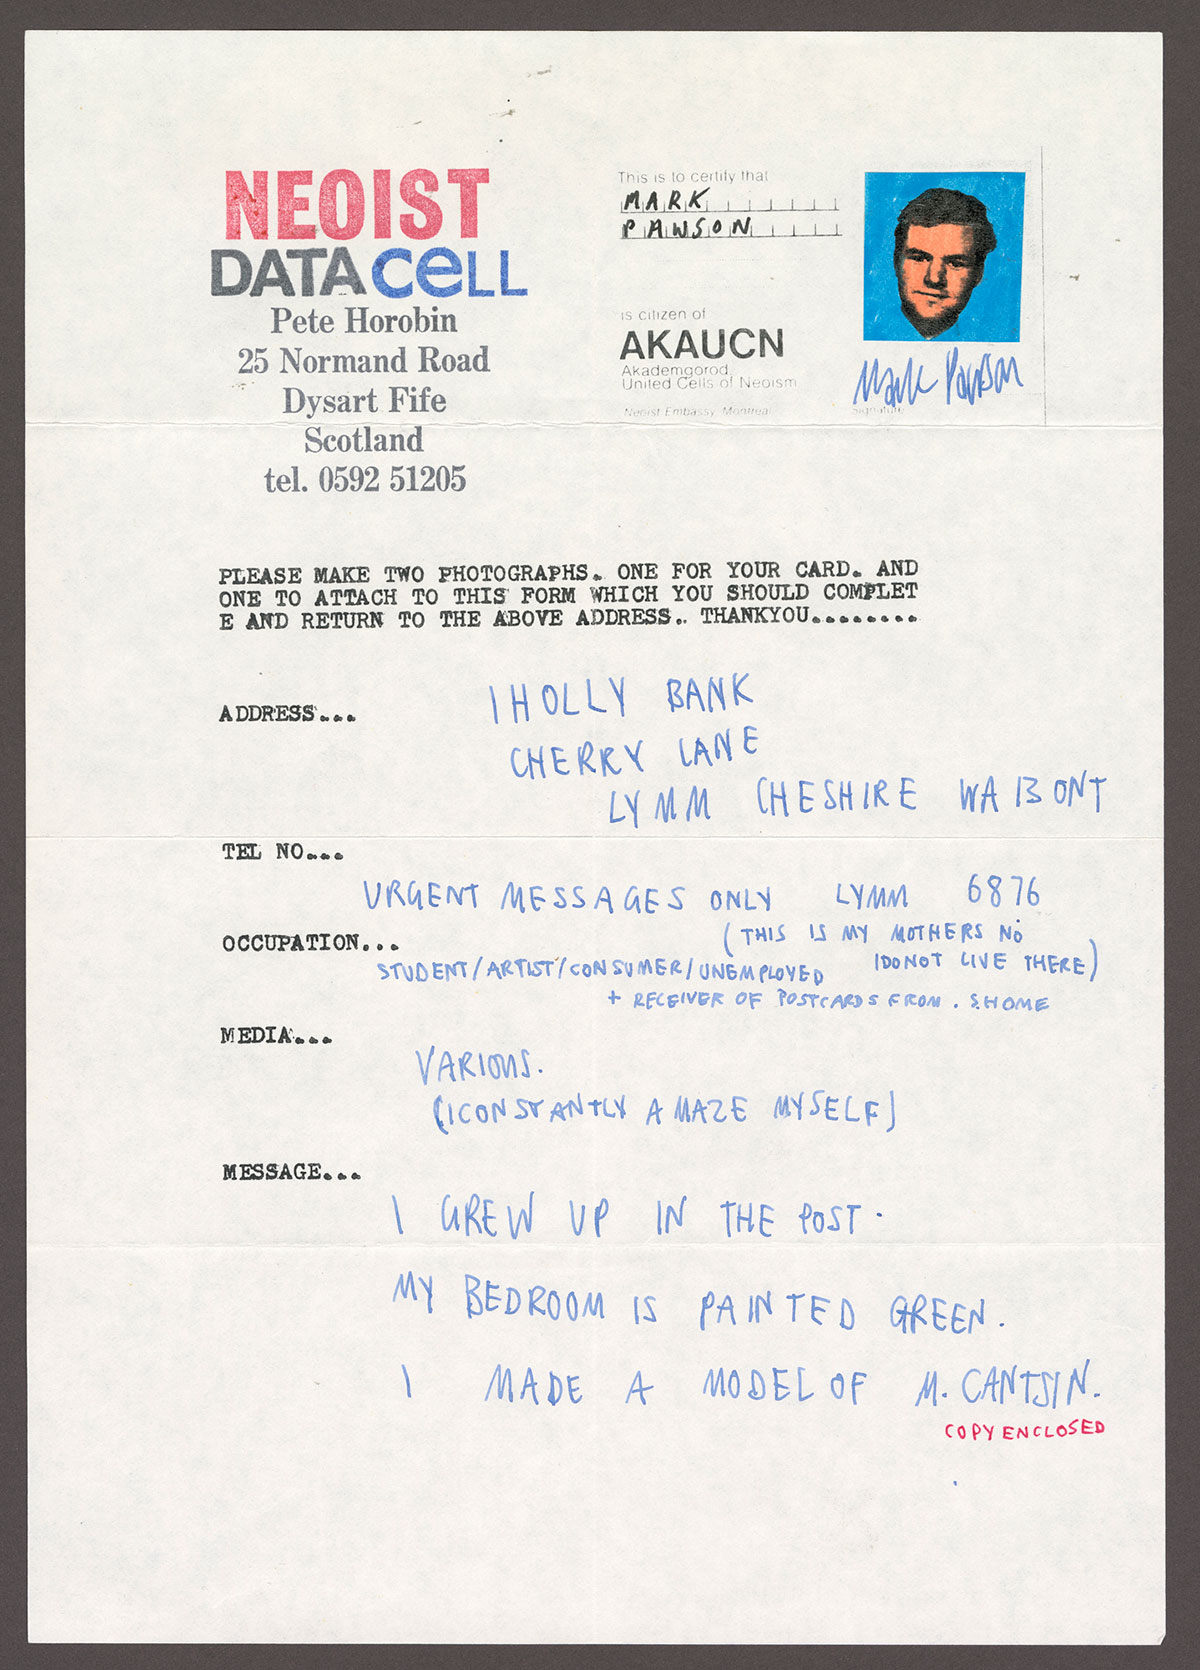 NEOIST
DATACeLL
Pete Horobin
25 Normand Road
Dysart Fife
Scotland
tel. 0592 51205
This is to certify that
MARK
PAWSON
is citizen of
AKAUCN
Akademgorod
United Cells of Neoism
Neoist Embassy, Montreal
Mark Pawson
signature
PLEASE MAKE TWO PHOTOGRAPHS. ONE FOR YOUR CARD. AND
ONE TO ATTACH TO THIS FORM WHICH YOU SHOULD COMPLET
E AND RETURN TO THE ABOVE ADDRESS.. THANKYOU........
ADDRESS...
1 HOLLY BANK
CHERRY LANE
LYMM CHESHIRE WA13 ONT
TEL NO...
URGENT MESSAGES ONLY LYMM 6876
(THIS IS MY MOTHERS NO
I DO NOT LIVE THERE)
OCCUPATION...
STUDENT/ARTIST/CONSUMER/UNEMPLOYED
+ RECEIVER OF POSTCARDS FROM . S.HOME
MEDIA...
VARIOUS.
(I CONSTANTLY AMAZE MYSELF)
MESSAGE...
I GREW UP IN THE POST.
MY BEDROOM IS PAINTED GREEN.
I MADE A MODEL OF M. CANTSIN.
COPY ENCLOSED